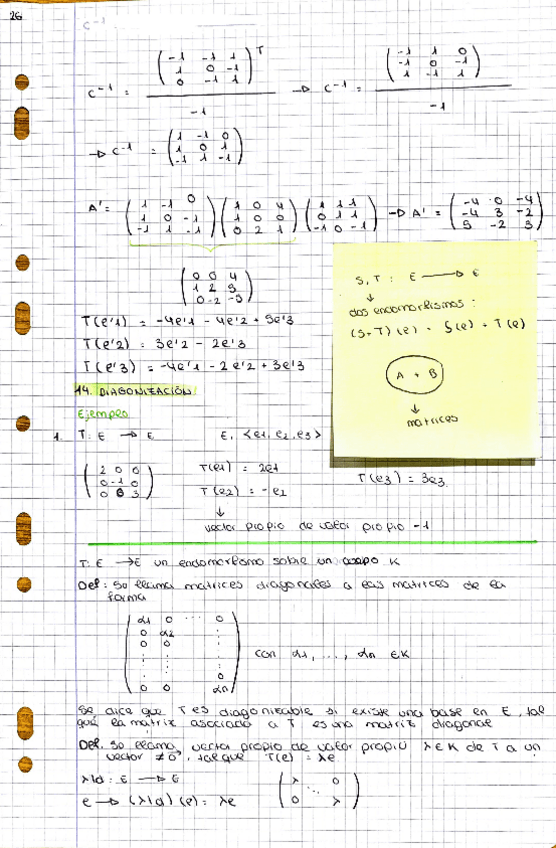 26
C⁻¹
C⁻¹ = (-1 -1 1; 1 0 -1; 0 -1 1)ᵀ / -1 → C⁻¹ = (-1 1 0; -1 0 -1; 1 -1 1) / -1
→ C⁻¹ = (1 -1 0; 1 0 1; -1 1 -1)
A' = (1 -1 0; 1 0 -1; -1 1 -1) (1 0 4; 1 0 0; 0 2 1) (1 1 1; 0 1 1; -1 0 -1) → A' = (-4 0 -4; -4 3 -2; 5 -2 3)
(0 0 4; 1 2 5; 0 -2 -5)
T(e'1) = -4e'1 - 4e'2 + 5e'3
T(e'2) = 3e'2 - 2e'3
T(e'3) = -4e'1 - 2e'2 + 3e'3
S, T : E → E
↓
dos endomorfismos:
(S+T)(e) = S(e) + T(e)
A + B
↓
matrices
14. DIAGONIZACIÓN
Ejemplo
1. T: E → E E, <e1, e2, e3>
(2 0 0; 0 -1 0; 0 0 3)
T(e1) = 2e1
T(e2) = -e2 T(e3) = 3e3
↓
vector propio de valor propio -1
T: E → E un endomorfismo sobre un cuerpo K
Def: Se llama matrices diagonales a las matrices de la
forma
(α1 0 ... 0; 0 α2; 0 0; 0; 0 0 αn) con α1, ..., αn ∈ K
Se dice que T es diagonizable si existe una base en E, tal
que la matriz asociada a T es una matriz diagonal
Def. Se llama vector propio de valor propio λ ∈ K de T a un
vector ≠ 0, tal que T(e) = λe
λId : E → E
e → (λId)(e) = λe (λ 0; ⋱; 0 λ)